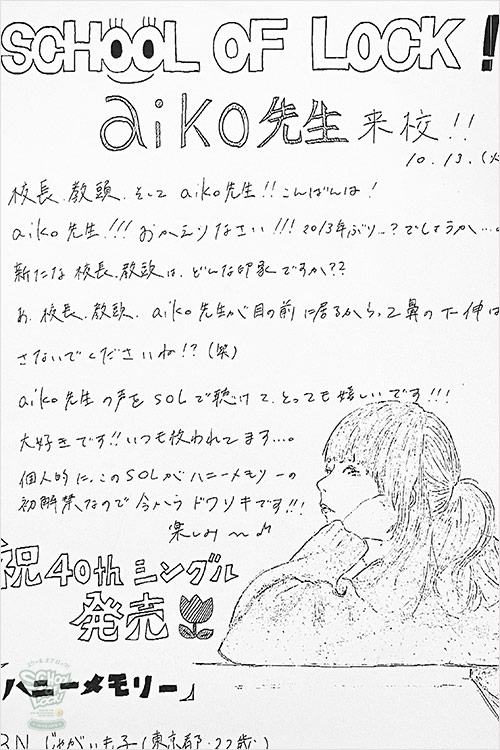 SCHOOL OF LOCK!
aiko先生 来校!!
10.13.(火
校長.教頭.そして aiko先生!! こんばんは!
aiko 先生!!! おかえりなさい!!! 2013年ぶり…?でしょうか…。
新たな校長.教頭は、どんな印象ですか??
あ.校長.教頭. aiko先生が目の前に居るからって鼻の下伸ば
さないでくださいね!?(笑)
aiko先生の声をSOLで聴けて、とっても嬉しいです!!!
大好きです!!いつも救われてます…。
個人的に、このSOLがハニーメモリーの
初解禁なので今からドワソキです!!!
楽しみ〜♪
祝40thシングル
発売
「ハニーメモリー」
RN じゃがいも子(東京都・22歳・)